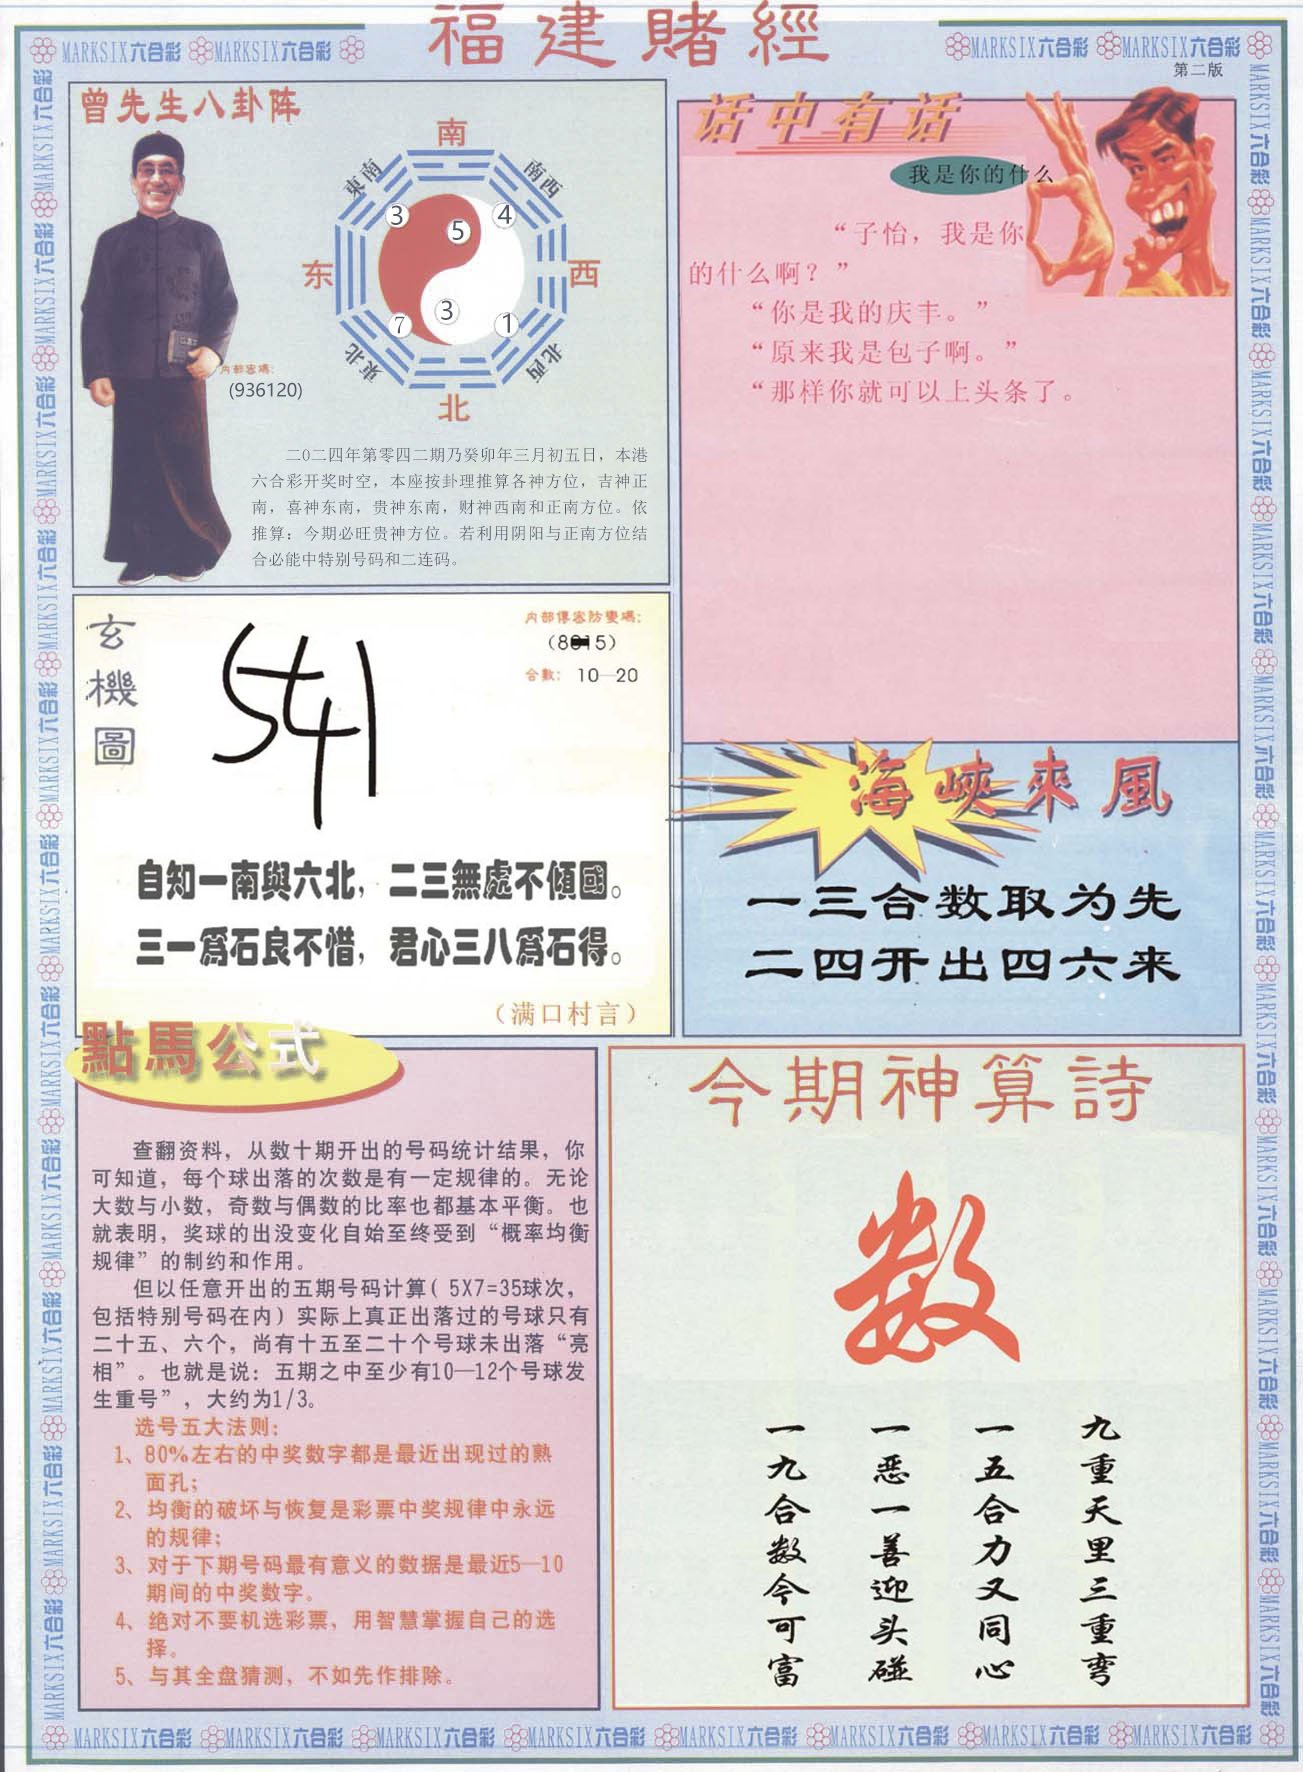 福建賭經
MARKSIX六合彩 MARKSIX六合彩
MARKSIX六合彩 MARKSIX六合彩
第二版
曾先生八卦阵
南
東南
南西
3
5
4
东
西
7
3
1
東北
北西
北
内部密碼:
(936120)
二0二四年第零四二期乃癸卯年三月初五日，本港
六合彩开奖时空，本座按卦理推算各神方位，吉神正
南，喜神东南，贵神东南，财神西南和正南方位。依
推算：今期必旺贵神方位。若利用阴阳与正南方位结
合必能中特别号码和二连码。
话中有话
我是你的什么
“子怡，我是你
的什么啊？”
“你是我的庆丰。”
“原来我是包子啊。”
“那样你就可以上头条了。
玄機圖
541
内部傳密防變碼:
合數: 10—20
自知一南與六北，二三無處不傾國。
三一爲石良不惜，君心三八爲石得。
（满口村言）
海峽來風
一三合数取为先
二四开出四六来
點馬公式
查翻资料，从数十期开出的号码统计结果，你
可知道，每个球出落的次数是有一定规律的。无论
大数与小数，奇数与偶数的比率也都基本平衡。也
就表明，奖球的出没变化自始至终受到“概率均衡
规律”的制约和作用。
但以任意开出的五期号码计算( 5X7=35球次，
包括特别号码在内）实际上真正出落过的号球只有
二十五、六个，尚有十五至二十个号球未出落“亮
相”。也就是说：五期之中至少有10—12个号球发
生重号”，大约为1/3。
选号五大法则：
1、80%左右的中奖数字都是最近出现过的熟
面孔；
2、均衡的破坏与恢复是彩票中奖规律中永远
的规律；
3、对于下期号码最有意义的数据是最近5—10
期间的中奖数字。
4、绝对不要机选彩票，用智慧掌握自己的选
择。
5、与其全盘猜测，不如先作排除。
今期神算詩
数
九重天里三重弯
一五合力又同心
一恶一善迎头碰
一九合数今可富
MARKSIX六合彩 MARKSIX六合彩 MARKSIX六合彩 MARKSIX六合彩 MARKSIX六合彩 MARKSIX六合彩 MARKSIX六合彩 MARKSIX六合彩